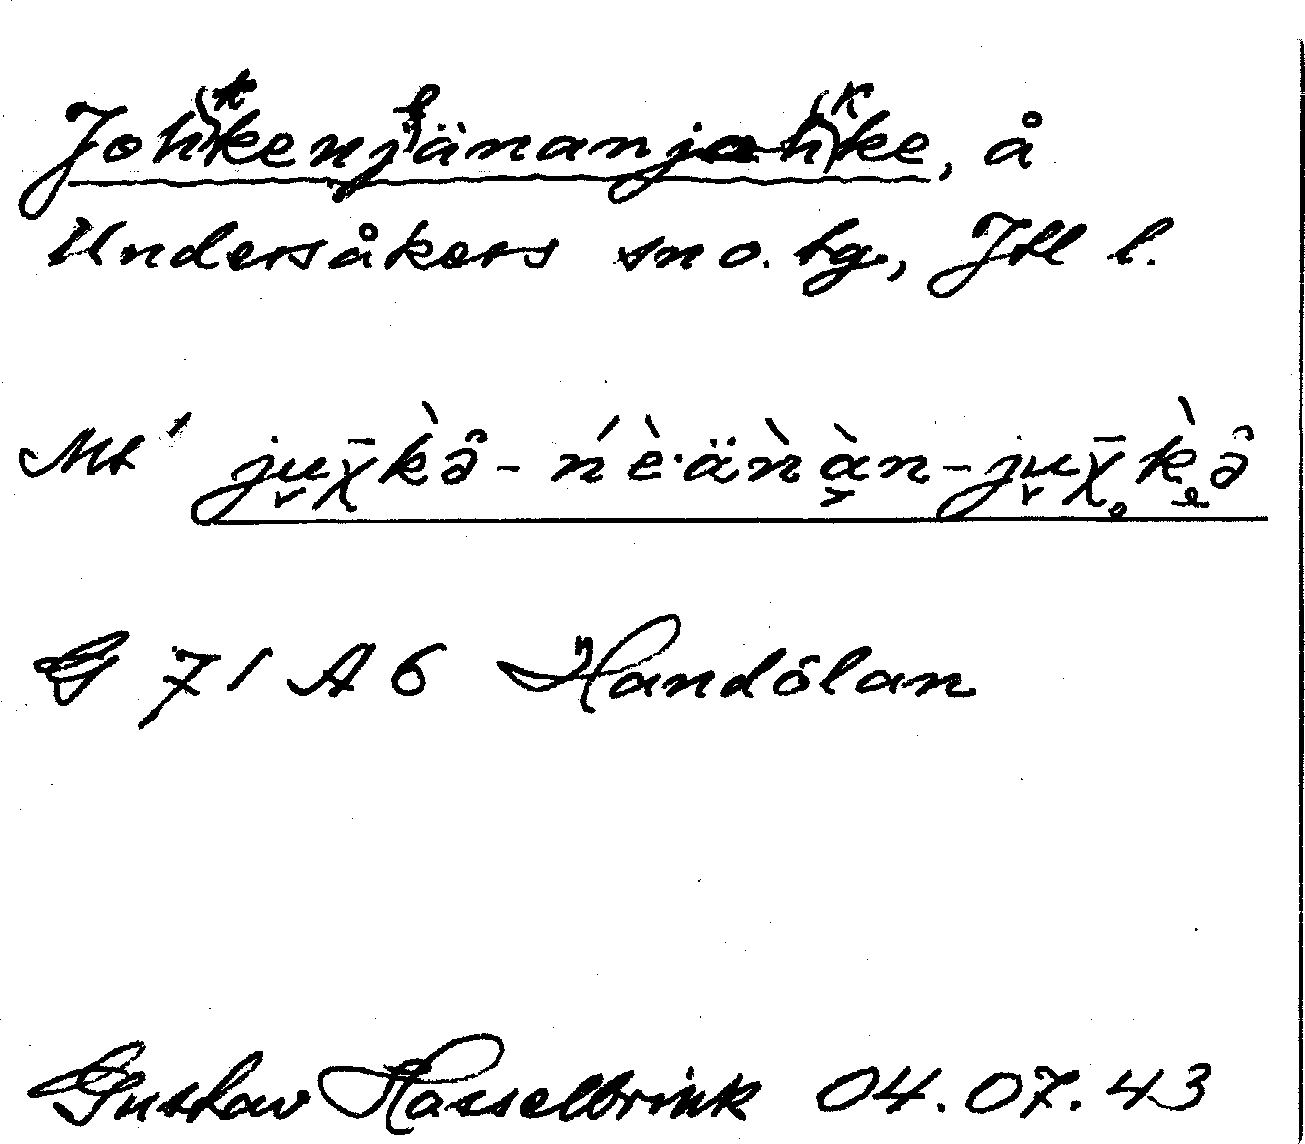 Johkenjänanjohke, å
Undersåkers sn o. tg, Jtl l.
Mt ju̬χ̄k̀ə̑ - ńè·äǹà̬n - ju̬χ̥̄k̀ə̑
G 71 A 6 Handölan
Gustav Hasselbrink 04.07.43